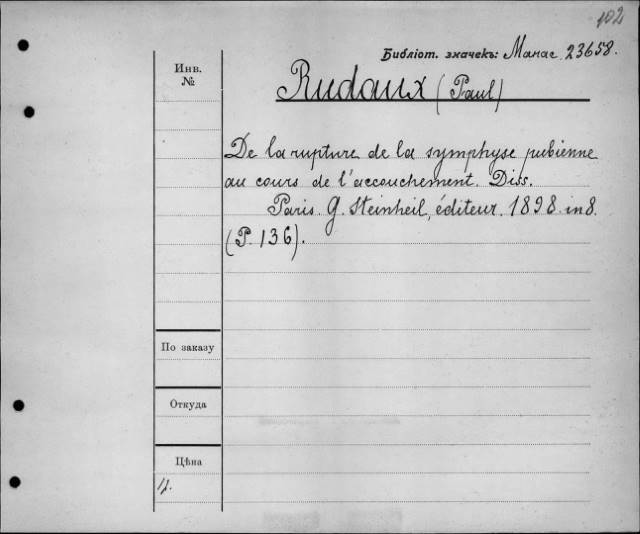 102
Библіот. значекъ: Магаг. 23658.
Инв.
№
Rudaux (Paul)
De la rupture de la symphyse pubienne
au cours de l'accouchement. Diss.
Paris. G. Steinheil, éditeur. 1898. in 8.
(P. 136).
По заказу
Откуда
Цѣна